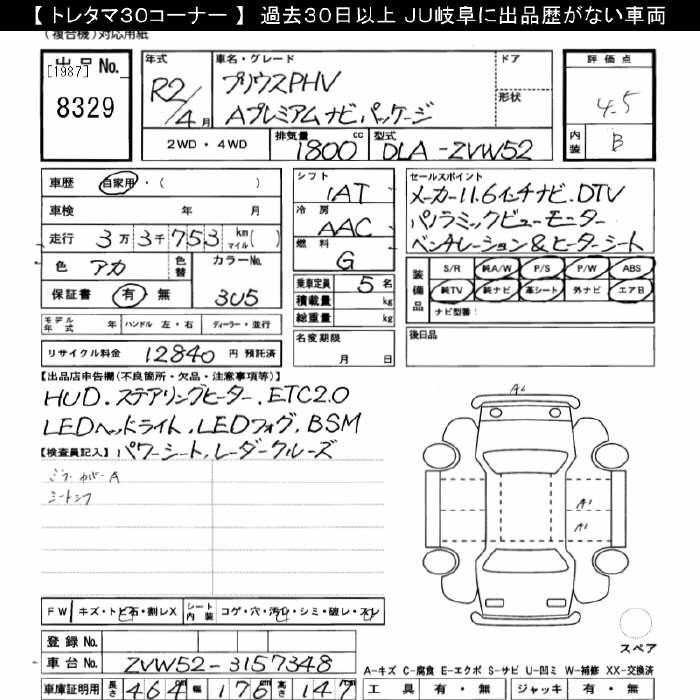 【トレタマ30コーナー】 過去30日以上 JU岐阜に出品歴がない車両
(複合機)対応用紙
出品No. [1987]
8329
年式 R2/4月
車名・グレード
プリウスPHV
Aプレミアムナビパッケージ
ドア
形状
評価点
4.5
内装 B
2WD・4WD 排気量 1800 cc 型式 DLA-ZVW52
車歴 自家用・( )
車検 年 月
走行 3万3千753 km マイル( )
色 アカ 色替 カラーNo. 3U5
保証書 有・無
モデル年式 年 ハンドル 左・右 ディーラー・並行
リサイクル料金 12840 円 預託済
シフト IAT
冷房 AAC
燃料 G
乗車定員 5名
積載量 kg
総重量 kg
名変期限
月 日
セールスポイント
メーカー11.6インチナビ.DTV
パノラミックビューモニター
ベンチレーション&ヒーターシート
装備品 S/R 純A/W P/S P/W ABS
純TV 純ナビ 革シート 外ナビ エアB
ナビ型番:
後日品
【出品店申告欄(不良箇所・欠品・注意事項等)】
HUD.ステアリングヒーター.ETC2.0
LEDヘッドライト,LEDフォグ,BSM
パワーシート,レーダークルーズ
【検査員記入】
ミラーカバーA
A1
A1
A1
FW キズ・トビ石・割レX シート内装 コゲ・穴・汚レ・シミ・破レ・スレ
登録No.
車台No. ZVW52-3157348
車庫証明用 長さ 464 幅 176 高さ 147
スペア
A-キズ C-腐食 E-エクボ S-サビ U-凹ミ W-補修 XX-交換済
工具 有・無 ジャッキ 有・無